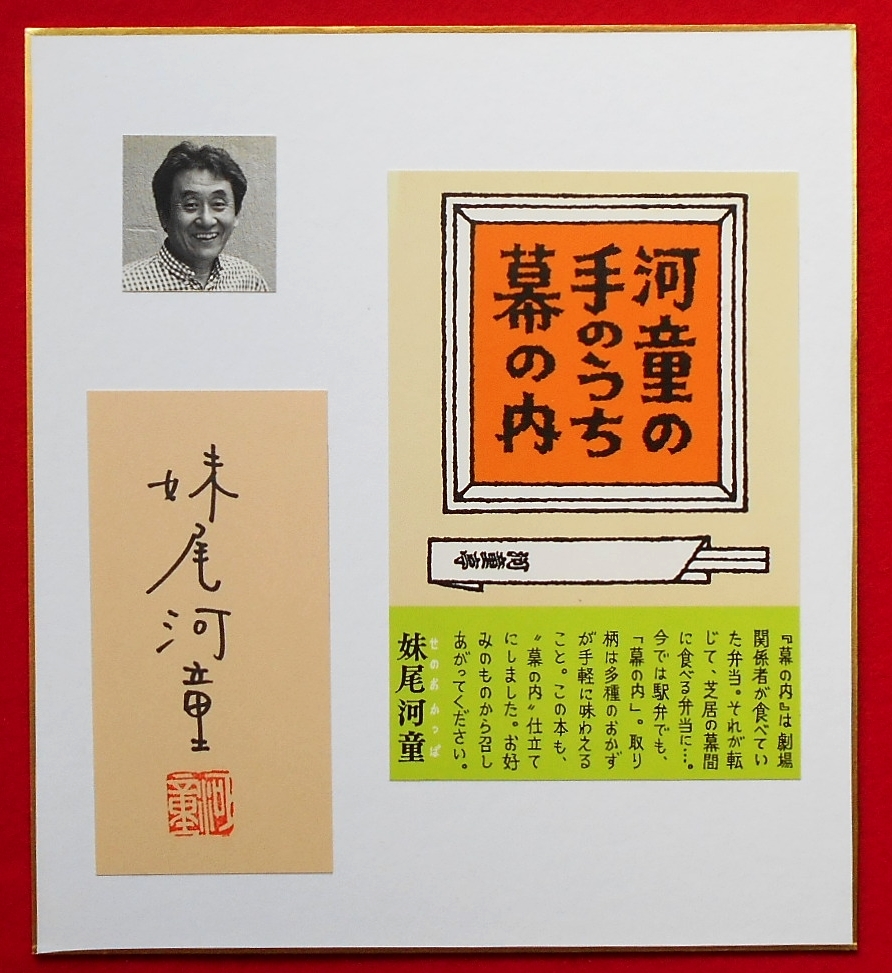 河童の
手のうち
幕の内
河童亭
『幕の内』は劇場
関係者が食べてい
た弁当。それが転
じて、芝居の幕間
に食べる弁当に…。
今では駅弁でも、
「幕の内」。取り
柄は多種のおかず
が手軽に味わえる
こと。この本も、
〝幕の内〟仕立て
にしました。お好
みのものから召し
あがってください。
せのおかっぱ
妹尾河童
妹尾河童
河童